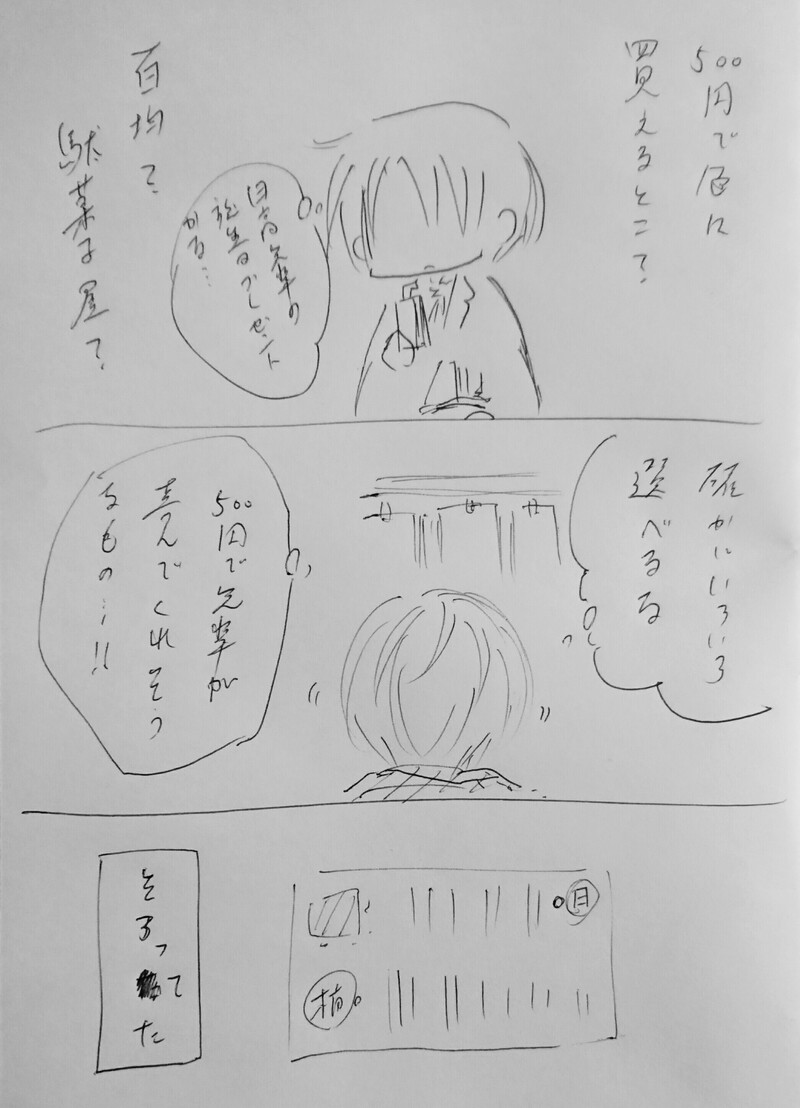 500円で色に
買えるとこ？
百均？
駄菓子屋？
日高先輩の
誕生日プレゼント
かる…
確かにいろいろ
選べるな
500円で先輩が
喜んでくれそう
なもの…!!
日
植
そろってた